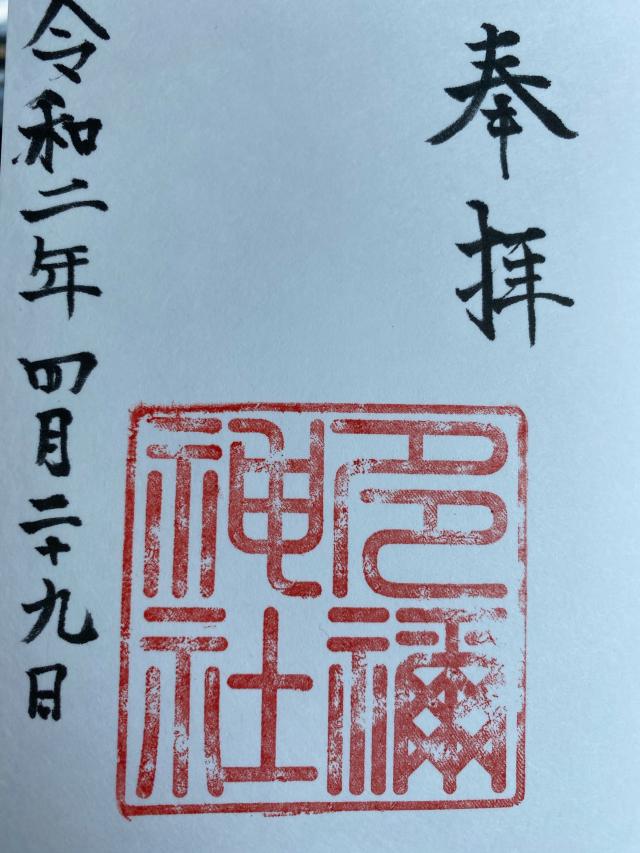 奉拝
神社
令和二年 四月二十九日